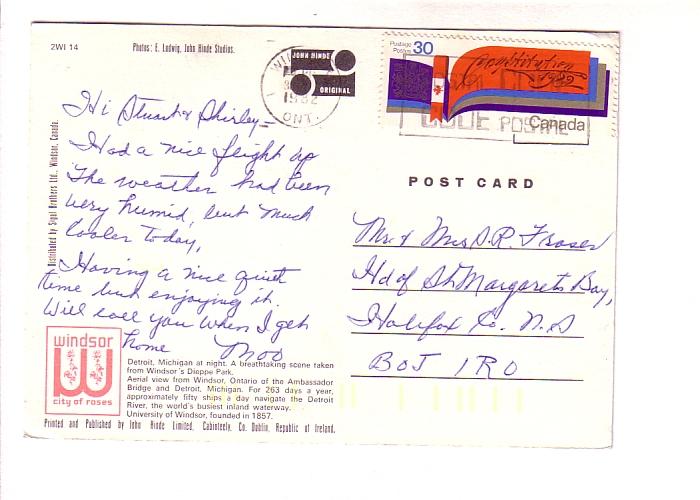 2WI 14
Photos: E. Ludwig, John Hinde Studios.
JOHN HINDE
ORIGINAL
1982
ONT.
Postage
Postes
30
Canada
CODE POSTAL
Distributed by Sigal Brothers Ltd., Windsor, Canada.
Hi Stuart & Shirley –
Had a nice flight up
The weather had been
very humid, but much
cooler today,
Having a nice quiet
time but enjoying it.
Will call you when I get
home
POST CARD
Mr. & Mrs S.R. Fraser
Hd of St. Margarets Bay,
Halifax Co. N.S
B0J 1R0
windsor
city of roses
Detroit, Michigan at night. A breathtaking scene taken
from Windsor's Dieppe Park.
Aerial view from Windsor, Ontario of the Ambassador
Bridge and Detroit, Michigan. For 263 days a year,
approximately fifty ships a day navigate the Detroit
River, the world's busiest inland waterway.
University of Windsor, founded in 1857.
Printed and Published by John Hinde Limited, Cabinteely, Co. Dublin, Republic of Ireland.